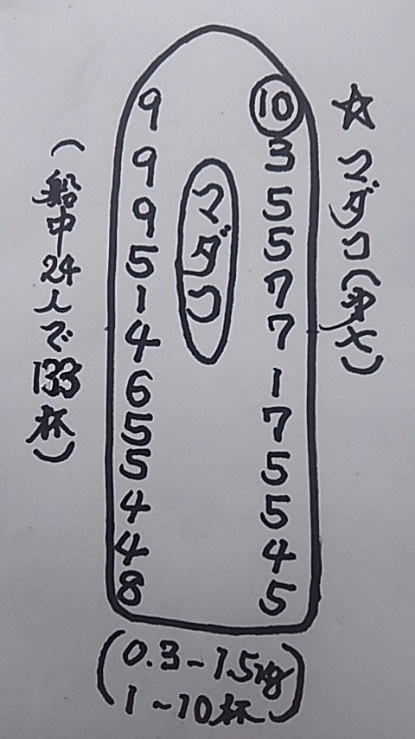 ☆マダコ(第七)
マダコ
9 10
9 3
9 5
5 5
1 7
4 7
6 1
5 7
5 5
4 5
4 4
8 5
(船中24人で133杯)
(0.3~1.5kg
1~10杯)